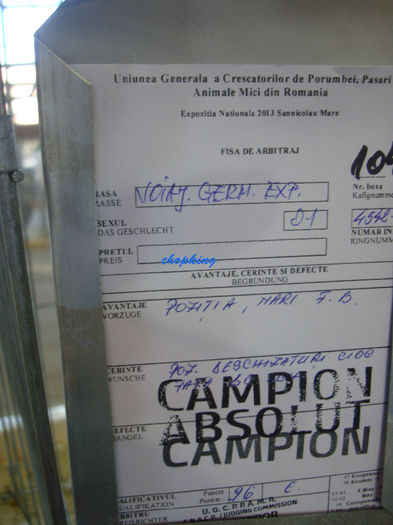 Uniunea Generala a Crescatorilor de Porumbei, Pasari
Animale Mici din Romania
Expozitia Nationala 2013 Sannicolau Mare
FISA DE ARBITRAJ
104
RASA
RASSE
VOIAJ. GERM. EXP.
Nr. boxa
Kafignumme
SEXUL
DAS GESCHLECHT
0-1
4542
NUMAR IN
RINGNUMM
PRETUL
PREIS
chopking
AVANTAJE, CERINTE SI DEFECTE
BEGRUNDUNG
AVANTAJE
VORZUGE
POZITIA, MARI F. B.
CERINTE
WUNSCHE
POZ. DESCHIZATURI CIOC
CAMPION
ABSOLUT
CAMPION
EFECTE
MANGEL
CALIFICATIVUL
QUALIFIKATION
Puncte
Punkte
96 E.
ARBITRU
U.G.C.P.P.A.M.R.
JUDGING COMMISSION